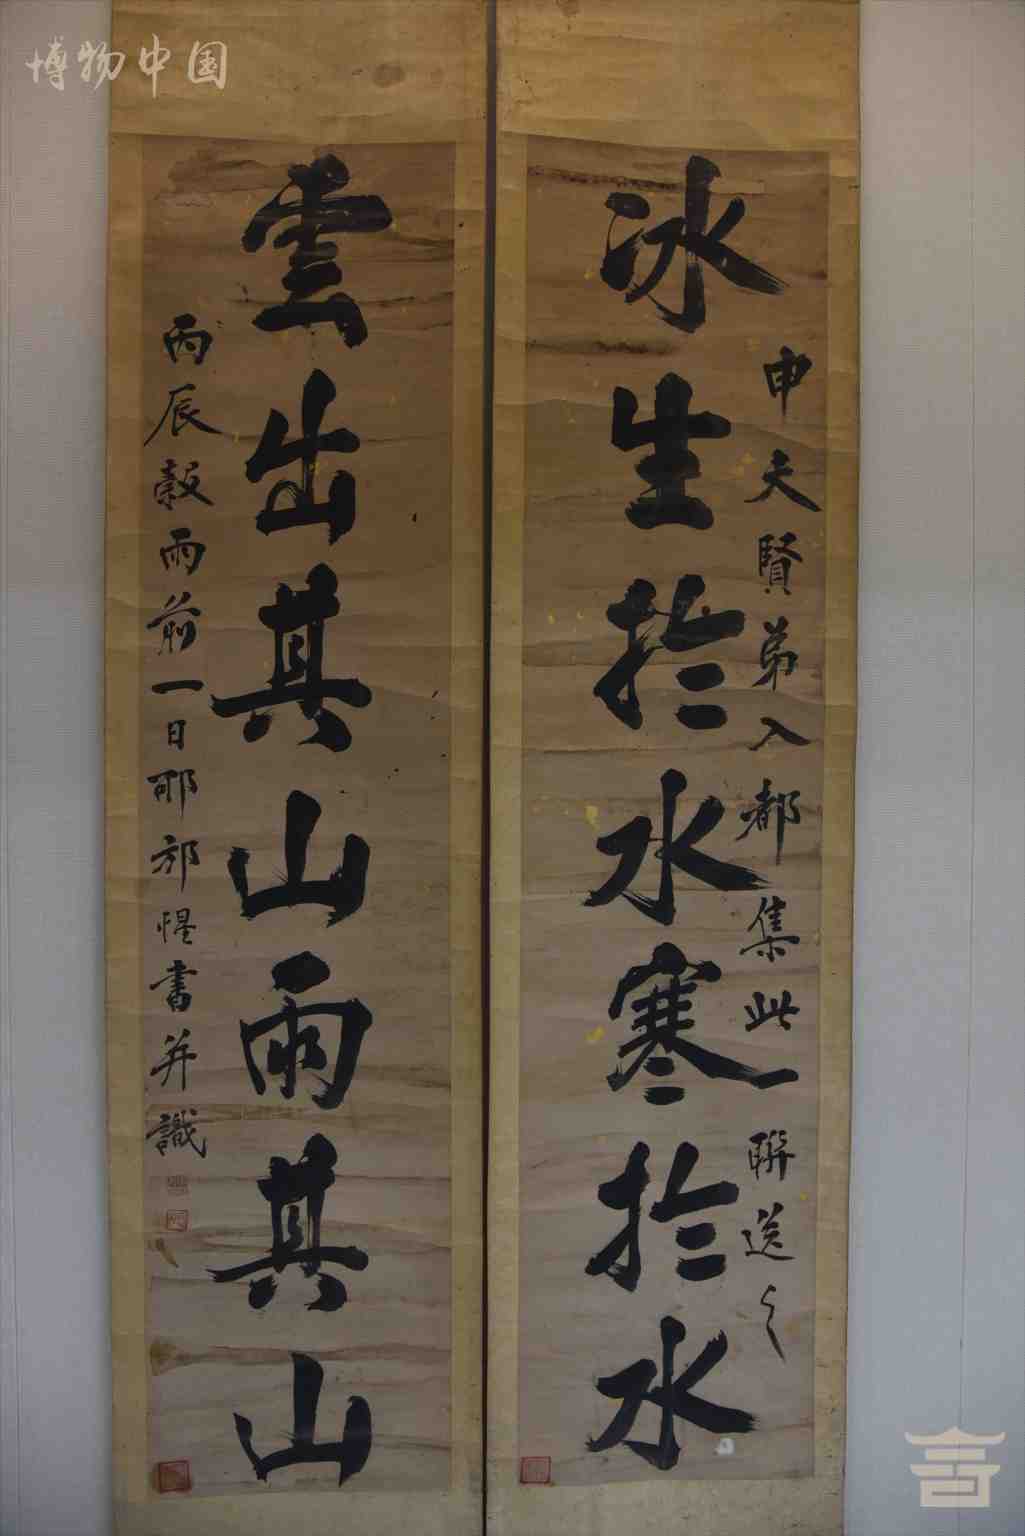 博物中国
申夫賢弟入都集此一聯送之
冰生於水寒於水
雲出其山雨其山
丙辰穀雨前一日邢祁惺書并識